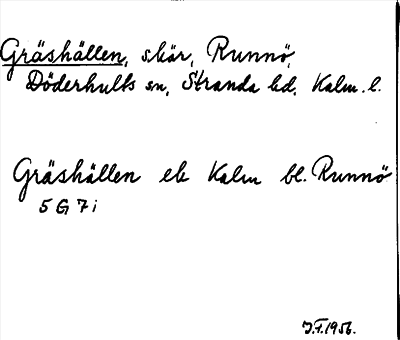 Gräshällen, skär, Runnö,
Döderhults sn, Stranda hd, Kalm. l.
Gräshällen ek Kalm bl. Runnö
5 G 7 i
J.F. 1956.